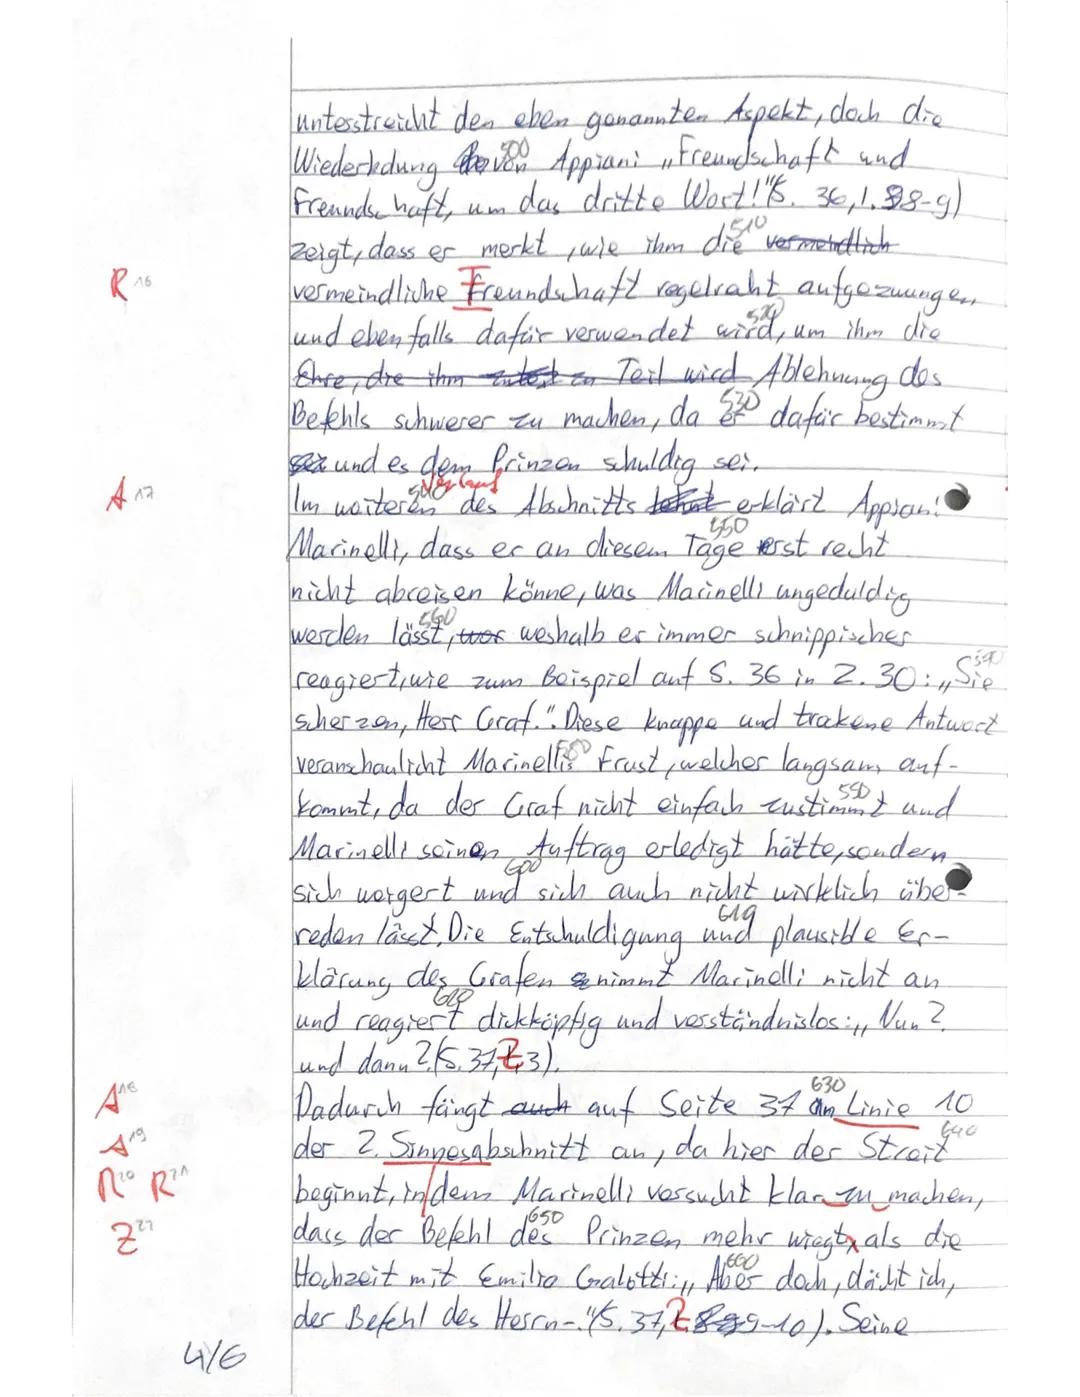 unterstreicht den eben genannten Aspekt, doch die
Wiederhdung von Appiani „Freundschaft und
500
Freundschaft, um das dritte Wort!"(S. 36, l. 8-9)
510
zeigt, dass er merkt, wie ihm die vermehdlich
R 16
vermeindliche Freundschaft regelraht aufgezwungen
520
und ebenfalls dafür verwendet wird, um ihm die
Ehre, die ihm Teil wird Ablehnung des
530
Befehls schwerer zu machen, da er dafür bestimmt
und es dem Prinzen schuldig sei.
Verlauf
A 17
540
Im weiteren des Abschnitts erklärt Appiani
550
Marinelli, dass er an diesem Tage erst recht
nicht abreisen könne, was Marinelli ungeduldig
560
werden lässt, weshalb er immer schnippischer
reagiert, wie zum Beispiel auf S. 36 in Z. 30: „Sie
scherzen, Herr Graf.". Diese knappe und trokene Antwort
580
veranschaulicht Marinellis Frust, welcher langsam auf-
590
kommt, da der Graf nicht einfach zustimmt und
Marinelli seinen Auftrag erledigt hätte, sondern
600
sich weigert und sich auch nicht wirklich über-
610
reden lässt. Die Entschuldigung und plausible Er-
klärung des Grafen nimmt Marinelli nicht an
620
und reagiert dickköpfig und verständnislos: „Nun?
und dann?(S. 37, Z. 3).
630
A 18
Dadurch fängt auch auf Seite 37 an Linie 10
A 19
640
der 2. Sinnesabschnitt an, da hier der Streit
R 20 R 21
beginnt, in dem Marinelli versucht klar zu machen,
650
Z 22
dass der Befehl des Prinzen mehr wiegt, als die
660
Hochzeit mit Emilia Galotti: „Aber doch, dächt ich,
der Befehl des Herrn-."(S. 37, Z. 9-10). Seine
4/6